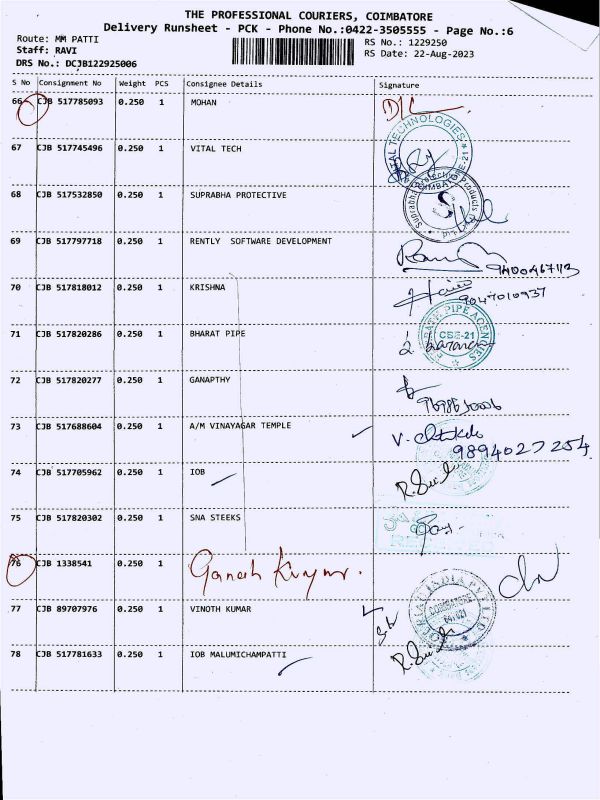 THE PROFESSIONAL COURIERS, COIMBATORE
Delivery Runsheet - PCK - Phone No.:0422-3505555 - Page No.:6
Route: MM PATTI
Staff: RAVI
DRS No.: DCJB122925006
RS No.: 1229250
RS Date: 22-Aug-2023
S No Consignment No Weight PCS Consignee Details Signature
66 CJB 517785093 0.250 1 MOHAN
67 CJB 517745496 0.250 1 VITAL TECH
68 CJB 517532850 0.250 1 SUPRABHA PROTECTIVE
69 CJB 517797718 0.250 1 RENTLY SOFTWARE DEVELOPMENT
70 CJB 517818012 0.250 1 KRISHNA 9047010937
71 CJB 517820286 0.250 1 BHARAT PIPE CBE-21
72 CJB 517820277 0.250 1 GANAPTHY
73 CJB 517688604 0.250 1 A/M VINAYAGAR TEMPLE 9894027254
74 CJB 517705962 0.250 1 IOB
75 CJB 517820302 0.250 1 SNA STEEKS
76 CJB 1338541 0.250 1 Ganesh Kumar.
77 CJB 89707976 0.250 1 VINOTH KUMAR
78 CJB 517781633 0.250 1 IOB MALUMICHAMPATTI